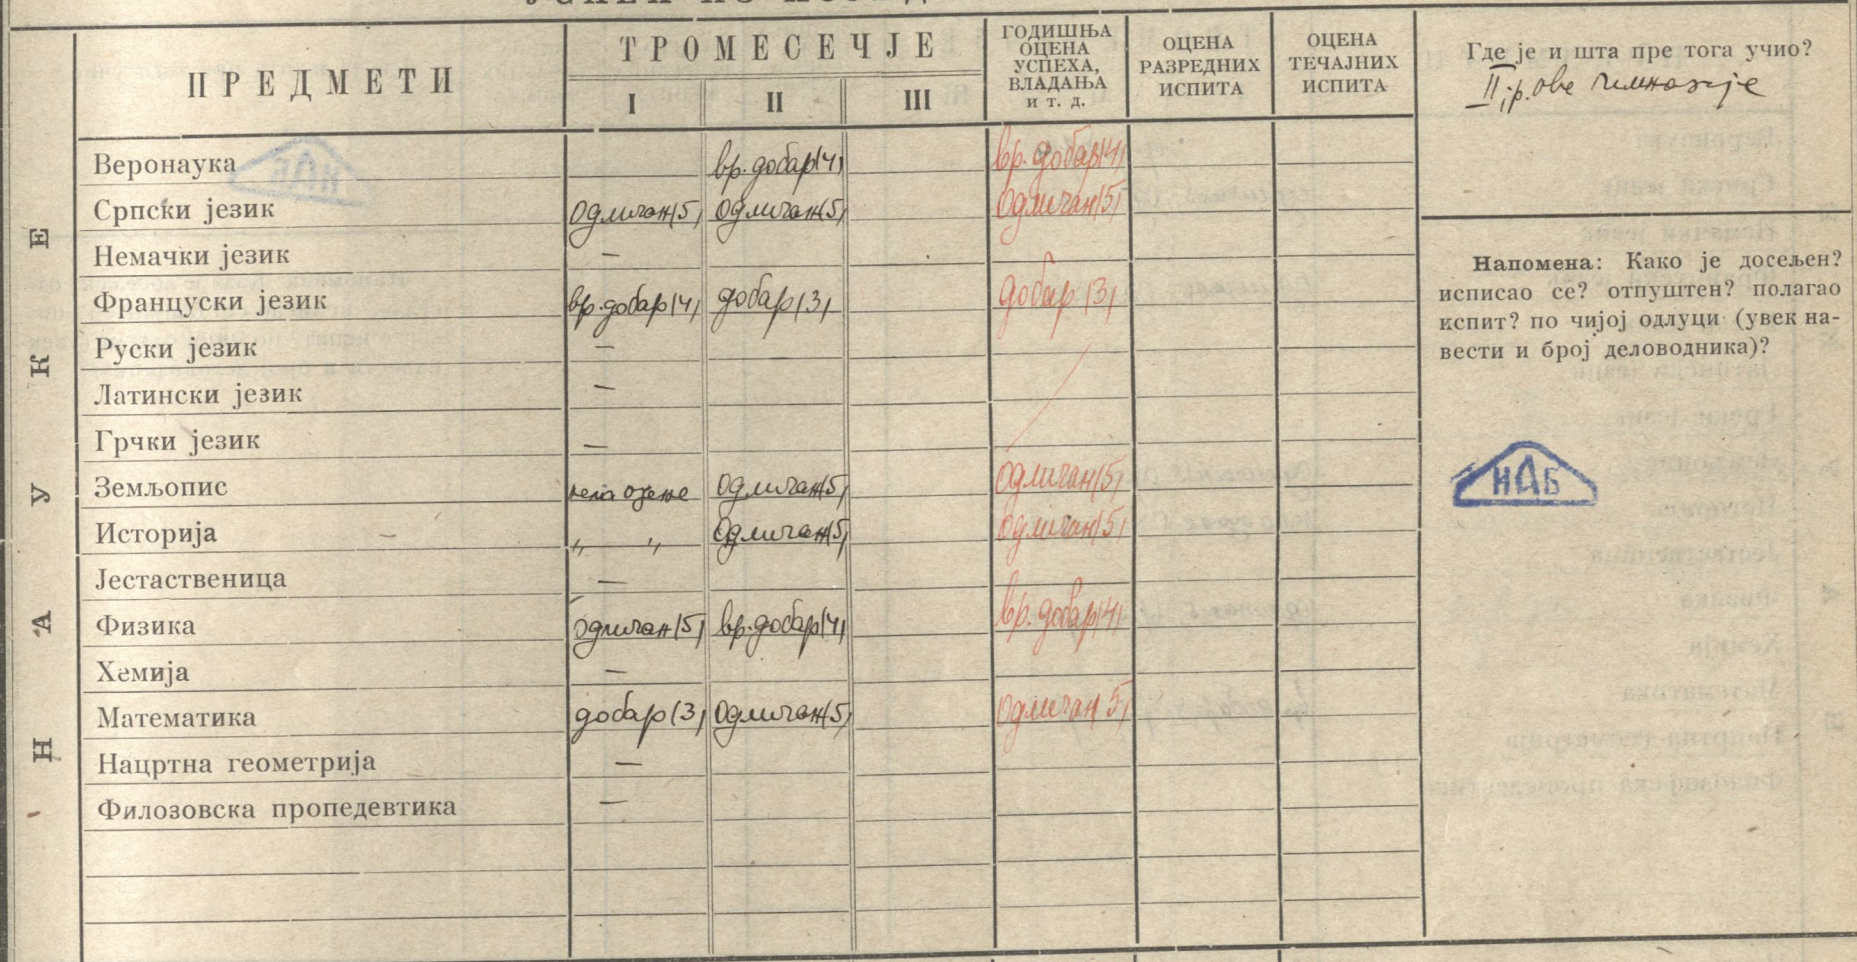 ПРЕДМЕТИ
ТРОМЕСЕЧЈЕ
I II III
ГОДИШЊА
ОЦЕНА
УСПЕХА,
ВЛАДАЊА
и т. д.
ОЦЕНА
РАЗРЕДНИХ
ИСПИТА
ОЦЕНА
ТЕЧАЈНИХ
ИСПИТА
Где је и шта пре тога учио?
II р. ове гимназије
НАУКЕ
Веронаука вр. добар (4) вр. добар (4)
Српски језик одличан (5) одличан (5) одличан (5)
Немачки језик —
Француски језик вр. добар (4) добар (3) добар (3)
Руски језик —
Латински језик —
Грчки језик —
Земљопис нема оцене одличан (5) одличан (5)
Историја „ „ одличан (5) одличан (5)
Јестаственица —
Физика одличан (5) вр. добар (4) вр. добар (4)
Хемија —
Математика добар (3) одличан (5) одличан 5)
Нацртна геометрија —
Филозовска пропедевтика —
Напомена: Како је досељен?
исписао се? отпуштен? полагао
испит? по чијој одлуци (увек на-
вести и број деловодника)?
НАБ